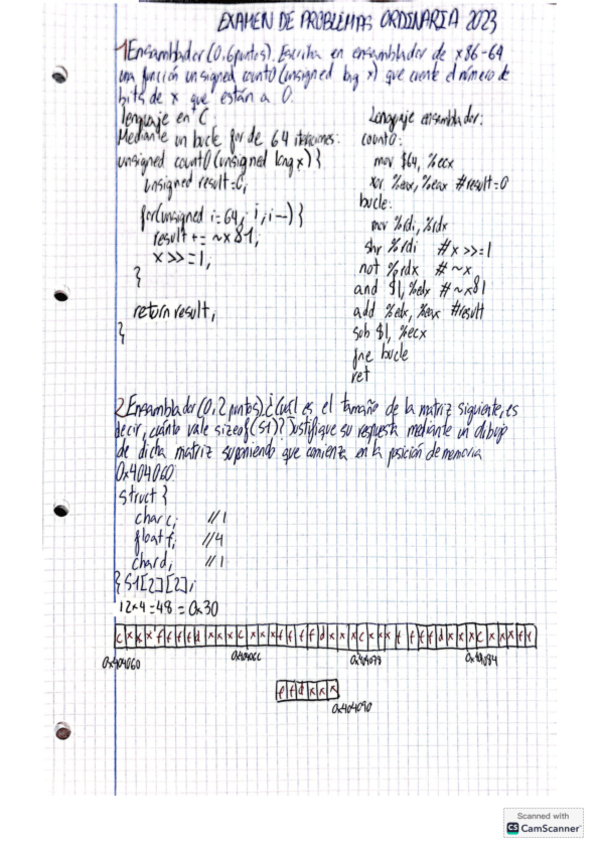 EXAMEN DE PROBLEMAS ORDINARIA 2023
1Ensamblador (0,6puntos). Escriba en ensamblador de x86-64
una función unsigned count0 (unsigned long x) que cuente el número de
bits de x que están a 0.
lenguaje en C:
Mediante un bucle for de 64 iteraciones:
unsigned count0 (unsigned long x) {
unsigned result=0;
for(unsigned i=64; i; i--) {
result += ~x&1;
x >>=1;
}
return result;
}
Lenguaje ensamblador:
count0:
mov $64, %ecx
xor %eax, %eax #result=0
bucle:
mov %rdi, %rdx
shr %rdi #x >>=1
not %rdx #~x
and $1, %edx #~x&1
add %edx, %eax #result
sub $1, %ecx
jne bucle
ret
2.Ensamblador (0,2 puntos). ¿Cuál es el tamaño de la matriz siguiente, es
decir, cuánto vale sizeof(S1)? Justifique su respuesta mediante un dibujo
de dicha matriz suponiendo que comienza en la posición de memoria
0x404060:
struct {
char c; //1
float f; //4
char d; //1
} S1[2][2];
12*4=48 = 0x30
c x x x f f f f d x x x c x x x f f f f d x x x c x x x f f f f d x x x c x x x f f
0x404060 0x40406C 0x404078 0x404084
f f d x x x
0x404090
Scanned with
CS CamScanner